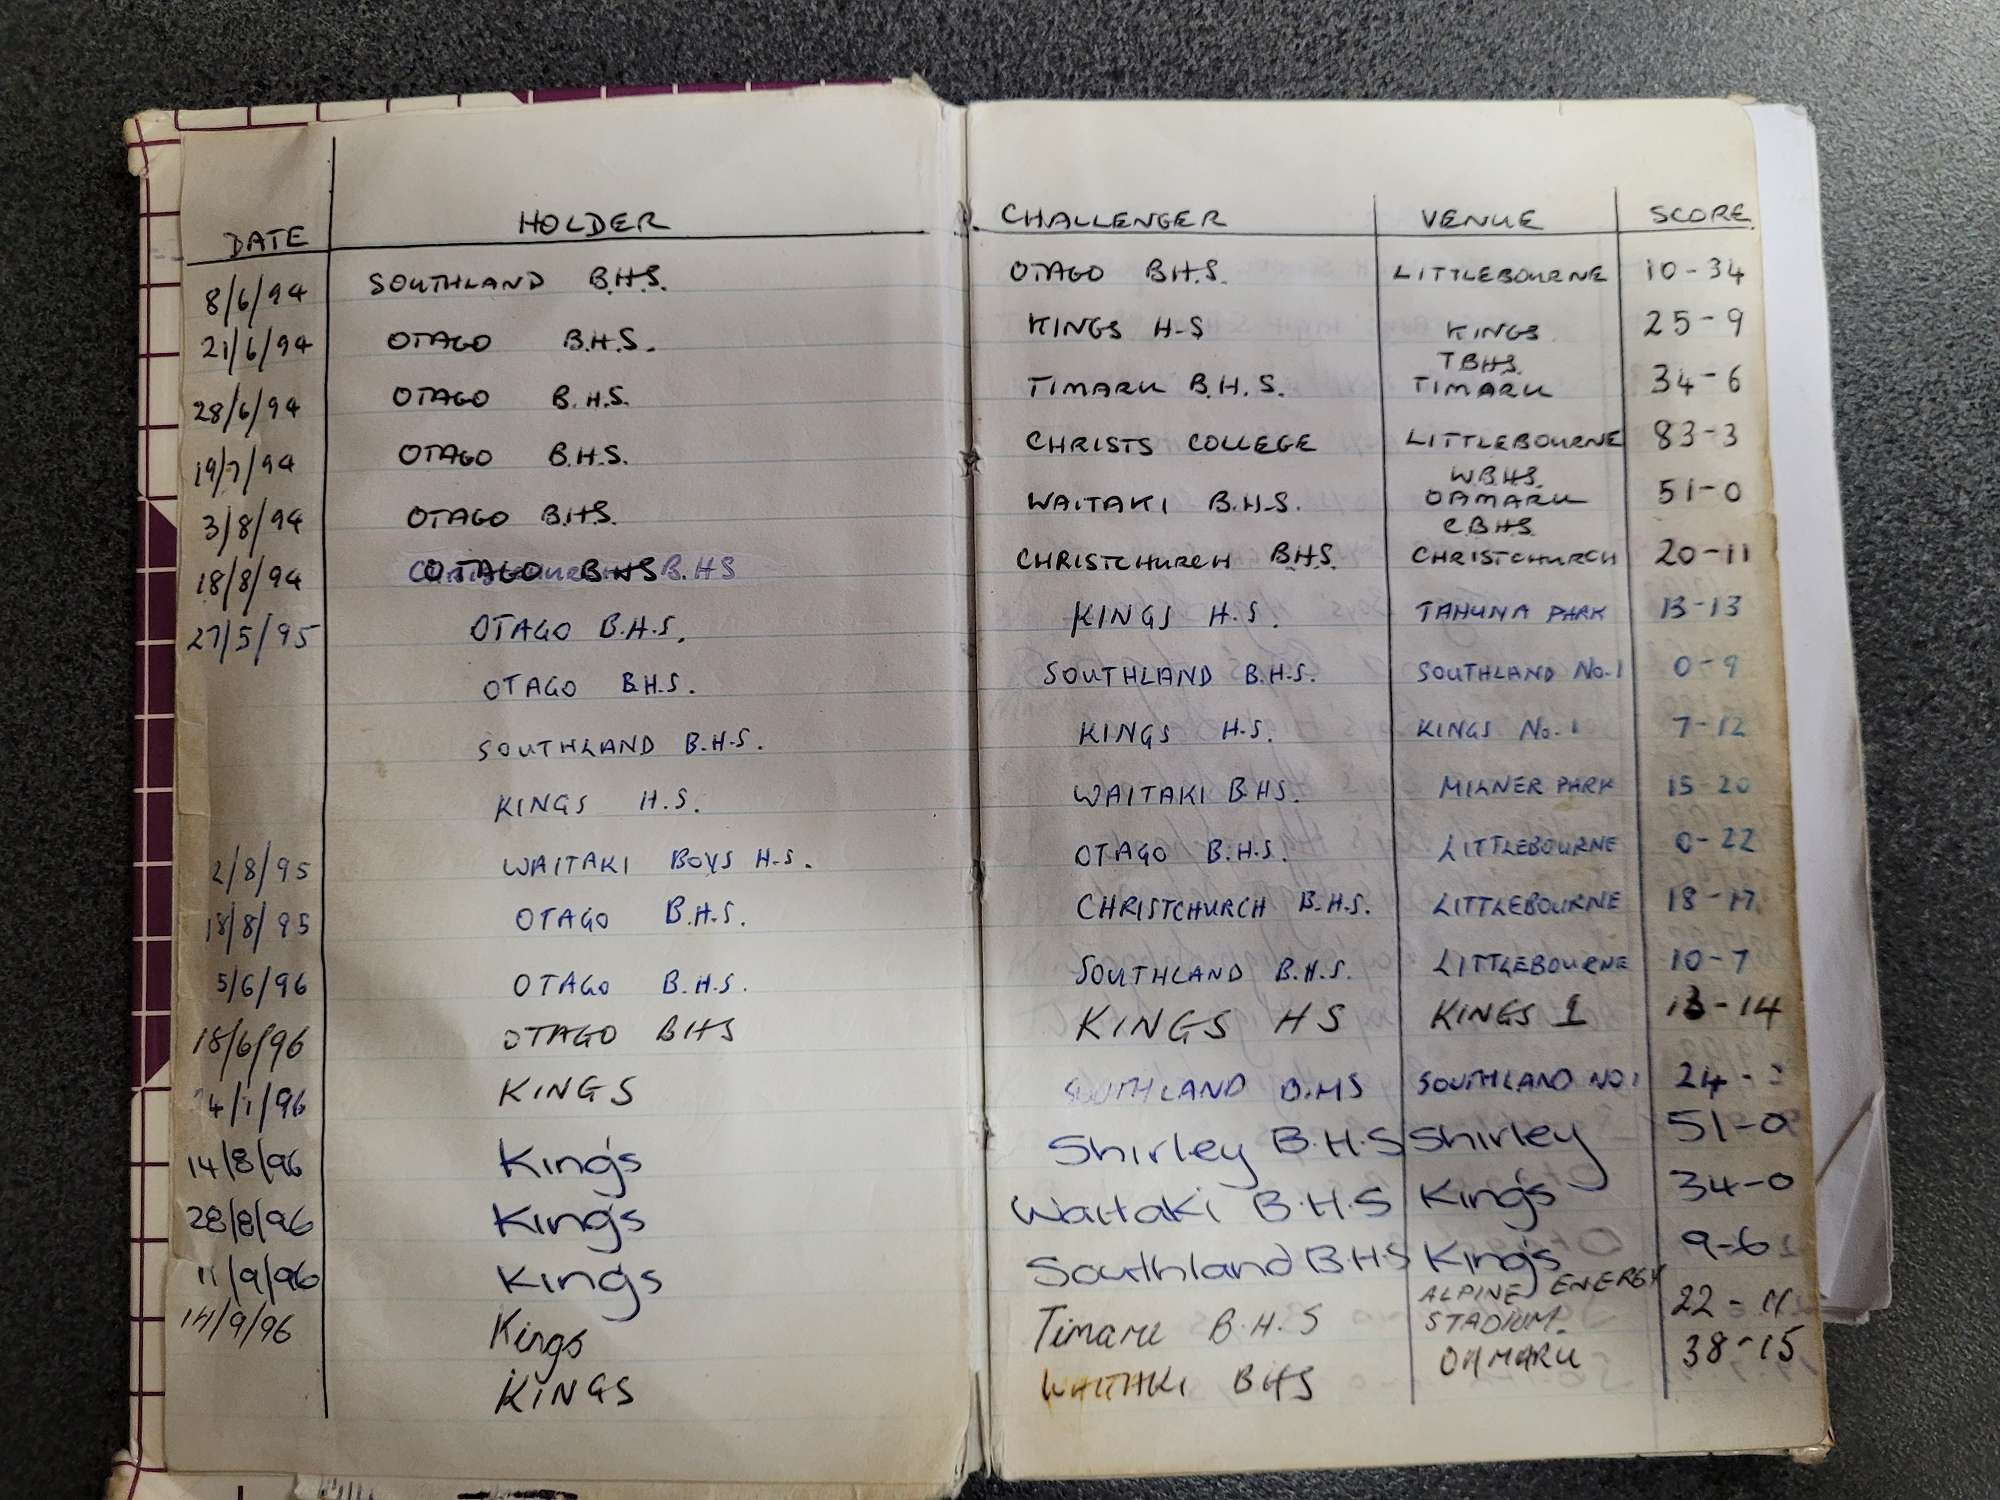 DATE HOLDER CHALLENGER VENUE SCORE
8/6/94 SOUTHLAND B.H.S. OTAGO B.H.S. LITTLEBOURNE 10-34
21/6/94 OTAGO B.H.S. KINGS H-S KINGS 25-9
28/6/94 OTAGO B.H.S. TIMARU B.H.S. TBHS. TIMARU 34-6
19/7/94 OTAGO B.H.S. CHRISTS COLLEGE LITTLEBOURNE 83-3
3/8/94 OTAGO B.H.S. WAITAKI B.H.S. W.B.H.S. OAMARU 51-0
18/8/94 OTAGO BHS B.H.S CHRISTCHURCH B.H.S. C.B.H.S. CHRISTCHURCH 20-11
27/5/95 OTAGO B.H.S. KINGS H.S. TAHUNA PARK 13-13
OTAGO B.H.S. SOUTHLAND B.H.S. SOUTHLAND No.1 0-9
SOUTHLAND B.H.S. KINGS H.S. KINGS No.1 7-12
KINGS H.S. WAITAKI B.H.S. MILNER PARK 15-20
2/8/95 WAITAKI BOYS H.S. OTAGO B.H.S. LITTLEBOURNE 0-22
18/8/95 OTAGO B.H.S. CHRISTCHURCH B.H.S. LITTLEBOURNE 18-17
5/6/96 OTAGO B.H.S. SOUTHLAND B.H.S. LITTLEBOURNE 10-7
18/6/96 OTAGO BHS KINGS HS KINGS 1 13-14
KINGS SOUTHLAND B.H.S SOUTHLAND NO1 24-
14/8/96 King's Shirley B.H.S Shirley 51-0
28/8/96 King's Waitaki B.H.S King's 34-0
11/9/96 King's Southland B.H.S King's 9-6
14/9/96 Kings Timaru B.H.S ALPINE ENERGY STADIUM. 22-11
KINGS WAITAKI BHS OAMARU 38-15